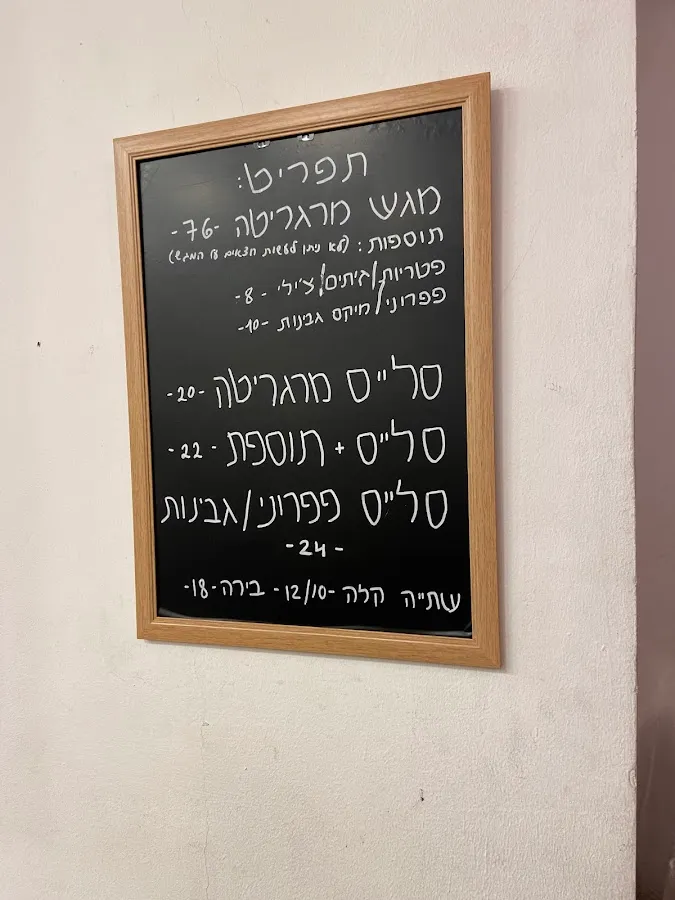 תפריט:
מגש מרגריטה -76-
תוספות: (לא ניתן לעשות חצאים על המגש)
פטריות/זיתים/צ'ילי - 8-
פפרוני/מיקס גבינות -10-
סלייס מרגריטה -20-
סלייס + תוספת -22-
סלייס פפרוני/גבינות
-24-
שתייה קלה -12/10- בירה -18-